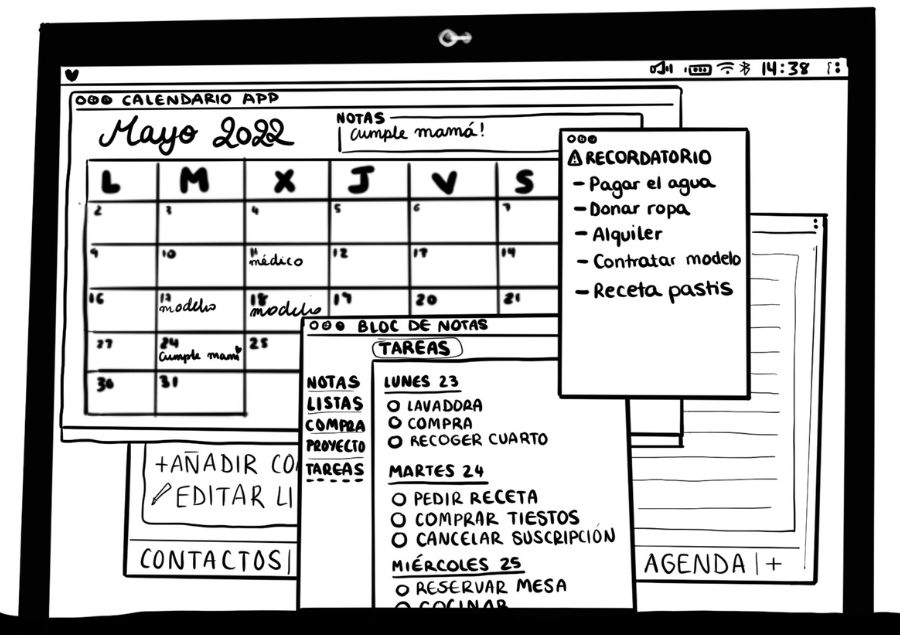 14:38
CALENDARIO APP
Mayo 2022
NOTAS
cumple mamá!
L M X J V S
2 3 4 5 6 7
9 10 11 12 13 14
médico
16 17 18 19 20 21
modelo modelo
23 24 25
Cumple mami
30 31
RECORDATORIO
- Pagar el agua
- Donar ropa
- Alquiler
- Contratar modelo
- Receta pastis
BLOC DE NOTAS
TAREAS
NOTAS
LISTAS
COMPRA
PROYECTO
TAREAS
LUNES 23
LAVADORA
COMPRA
RECOGER CUARTO
MARTES 24
PEDIR RECETA
COMPRAR TIESTOS
CANCELAR SUSCRIPCIÓN
MIÉRCOLES 25
RESERVAR MESA
COCINAR
+AÑADIR CO
EDITAR LI
CONTACTOS|
AGENDA|+